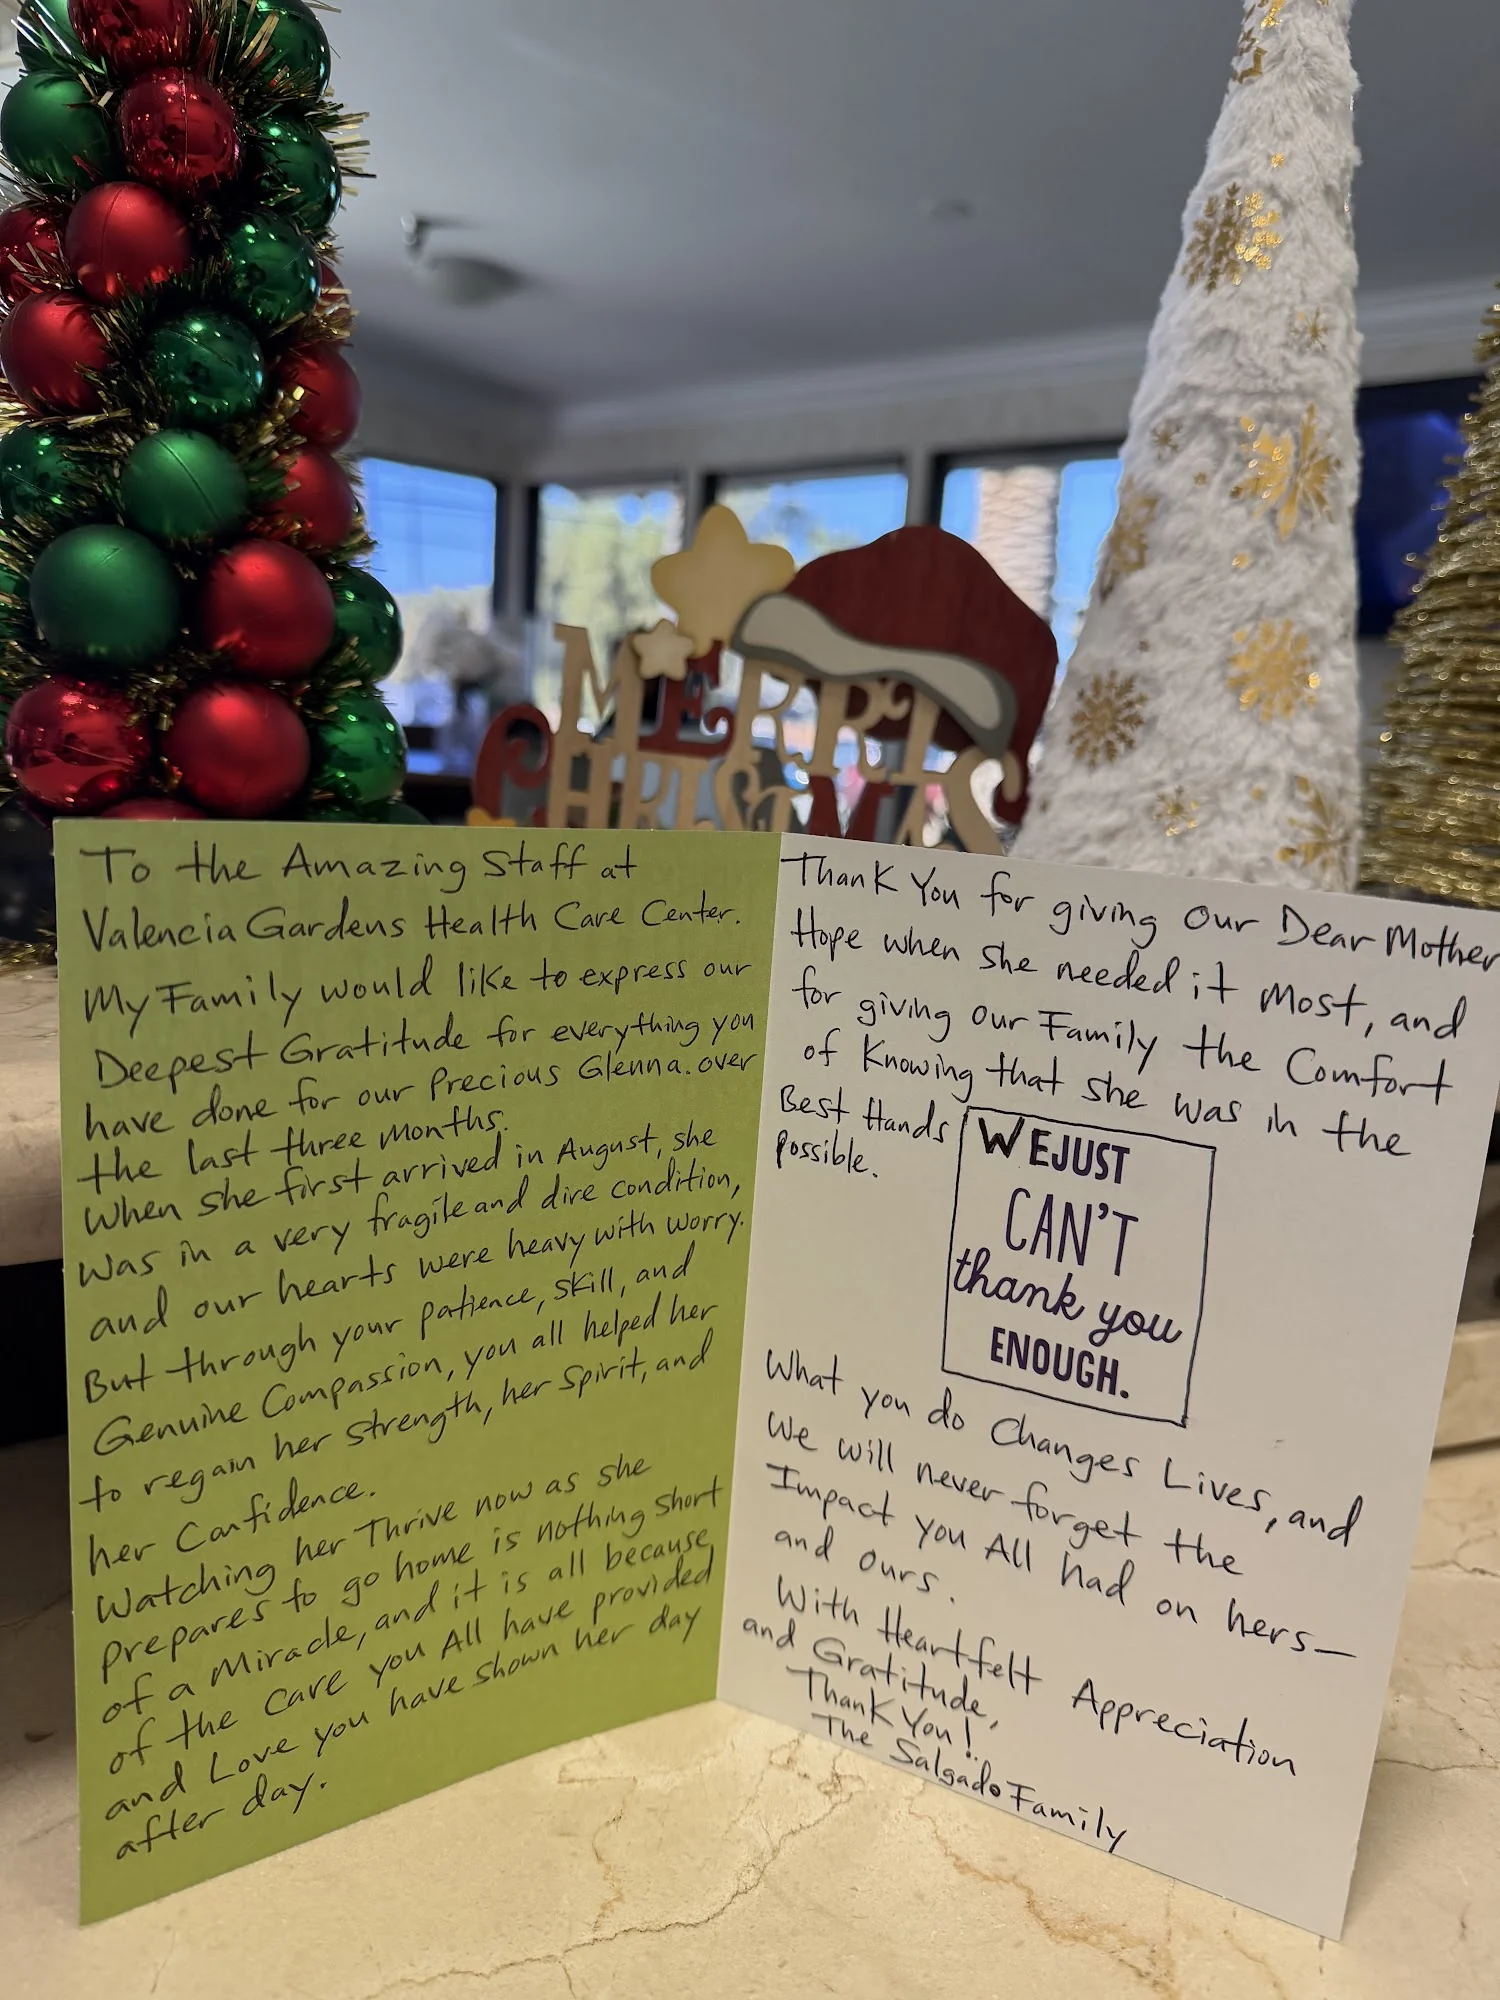 MERRY
CHRISTMAS
To the Amazing Staff at
Valencia Gardens Health Care Center.
My Family would like to express our
Deepest Gratitude for everything you
have done for our Precious Glenna. over
the last three months.
When she first arrived in August, she
was in a very fragile and dire condition,
and our hearts were heavy with worry.
But through your patience, skill, and
Genuine Compassion, you all helped her
to regain her strength, her spirit, and
her Confidence.
Watching her Thrive now as she
prepares to go home is nothing short
of a Miracle, and it is all because
of the care you All have provided
and Love you have shown her day
after day.
Thank You for giving Our Dear Mother
Hope when she needed it most, and
for giving our Family the Comfort
of Knowing that she was in the
Best Hands
possible.
WE JUST
CAN'T
thank you
ENOUGH.
What you do Changes Lives, and
We will never forget the
Impact you All had on hers—
and ours.
With Heartfelt Appreciation
and Gratitude,
Thank You!
The Salgado Family